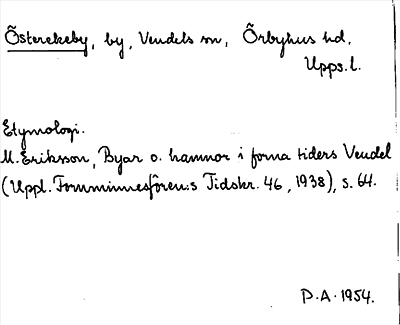 Österekeby, by, Vendels sn, Örbyhus hd,
Upps. l.
Etymologi.
M. Eriksson, Byar o. hamnor i forna tiders Vendel
(Uppl. Fornminnesfören:s Tidskr. 46, 1938), s. 64.
P.A. 1954.